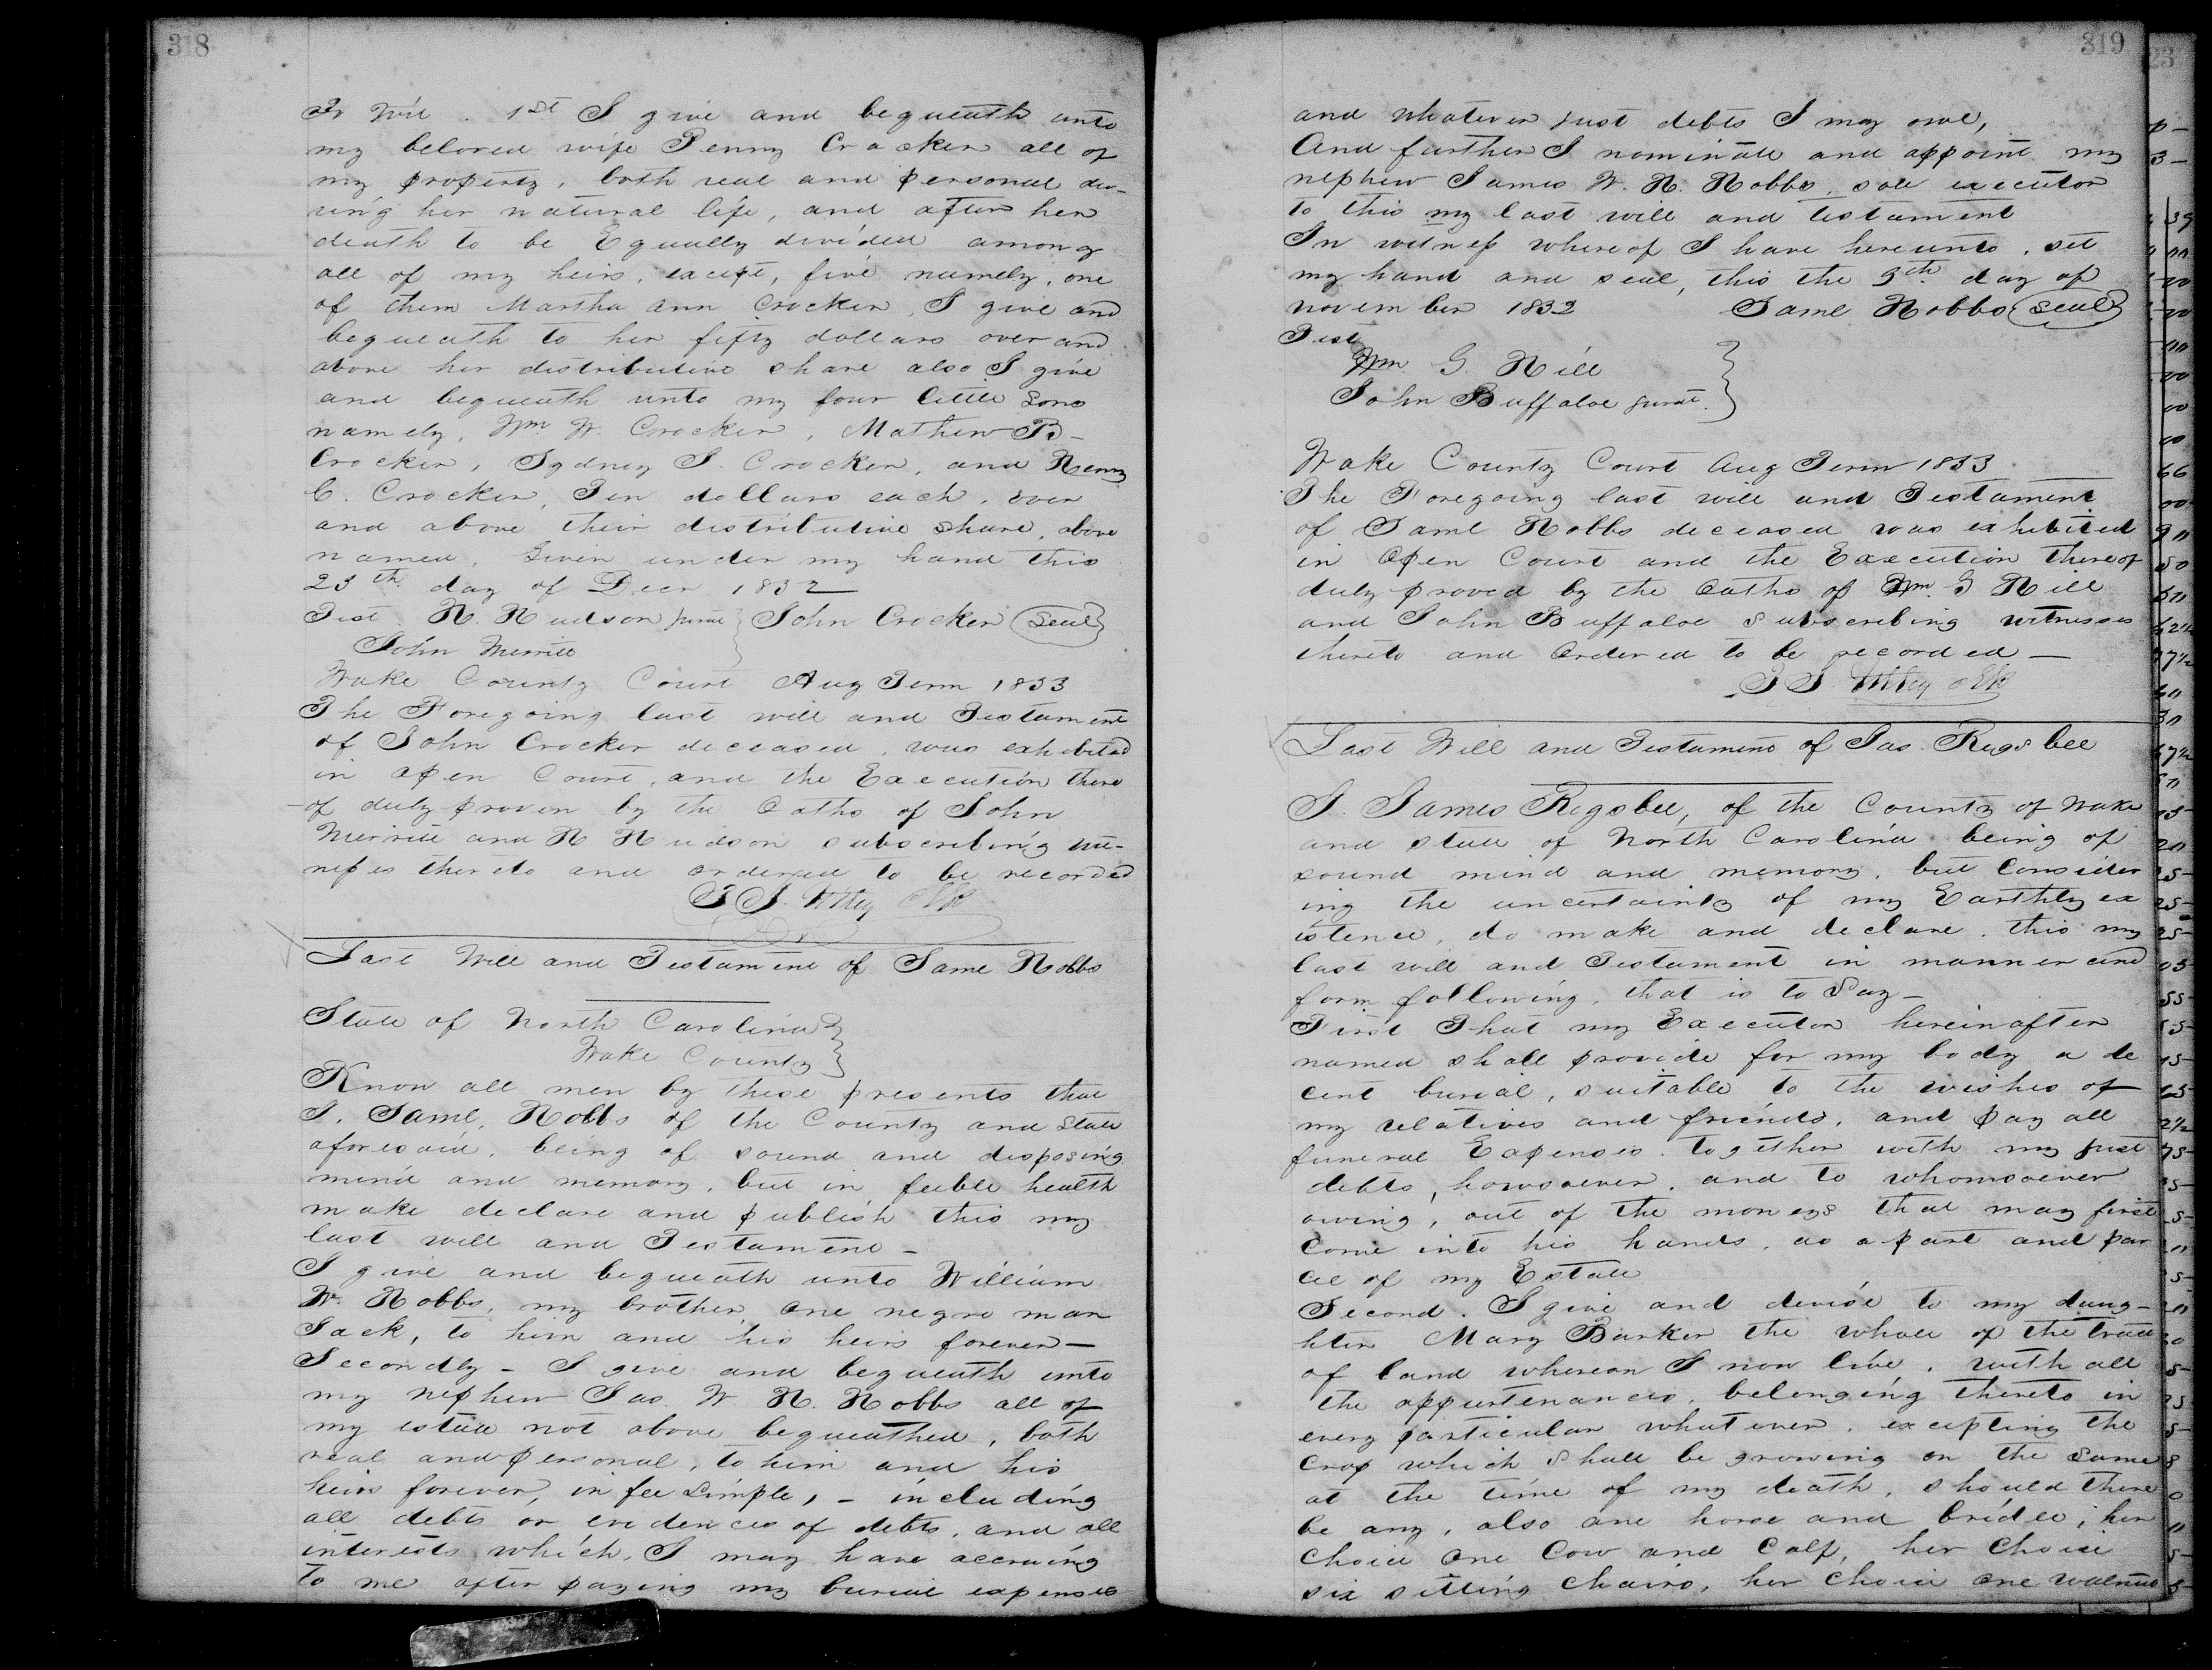 318
To Wit. 1st I give and bequeath unto
my beloved wife Penny Crocker all of
my property, both real and personal du-
ring her natural life, and after her
death to be Equally divided among
all of my heirs, except, five namely, one
of them Martha ann Crocker, I give and
bequeath to her fifty dollars over and
above her distributive share also I give
and bequeath unto my four little Sons
namely, Wm W. Crocker, Mathew B-
Crocker, Sydney S. Crocker, and Henry
C. Crocker, Ten dollars each, over
and above their distributive share, above
named, Given under my hand this
25th day of Decr 1832
Test. H. Hudson jurat } John Crocker (Seal)
John Merritt
Wake County Court Aug Term 1833
The Foregoing last will and Testament
of John Crocker deceased, was exhibited
in open Court, and the Execution there
-of duly proven by the Oaths of John
Merritt and H. Hudson subscribing wit-
nesses thereto and ordered to be recorded
Clk
Last Will and Testament of Saml Hobbs
State of North Carolina }
Wake County }
Know all men by these presents that
I, Saml, Hobbs of the County and State
aforesaid, being of sound and disposing
mind and memory, but in feeble health
make declare and publish this my
last will and Testament -
I give and bequeath unto William
W. Hobbs, my brother, one negro man
Jack, to him and his heirs forever -
Secondly - I give and bequeath unto
my nephew Jas. W. H. Hobbs all of
my estate not above bequeathed, both
real and personal, to him and his
heirs forever, in fee Simple, - including
all debts or evidences of debts, and all
interests which, I may have accruing
to me after paying my burial expenses
319
and whatever just debts I may owe,
And further I nominate and appoint my
nephew James W. H. Hobbs, sole executor
to this my last will and testament
In witness whereof I have hereunto, set
my hand and seal, this the 5th day of
november 1832 Saml Hobbs (seal)
Test
Wm G. Hill }
John Buffaloe jurat. }
Wake County Court Aug Term 1833
The Foregoing last will and Testament
of Saml Hobbs deceased was exhibited
in Open Court and the Execution thereof
duly proved by the Oaths of Wm. G Hill
and John Buffaloe Subscribing witnesses
thereto and Ordered to be recorded -
Clk
Last Will and Testament of Jas. Rigsbee
I. James Rigsbee, of the County of Wake
and state of North Carolina being of
sound mind and memory, but Consider
ing the uncertainty of my Earthly ex
istence, do make and declare, this my
last will and Testament in manner and
form following, that is to Say -
First That my Executor hereinafter
named shall provide for my body a de
cent burial, suitable to the wishes of
my relatives and friends, and pay all
funeral Expenses together with my just
debts, howsoever, and to whomsoever
owing, out of the moneys that may first
come into his hands, as a part and par
cel of my Estate
Second. I give and devise to my daug-
hter Mary Barker the whole of the tract
of land whereon I now live, with all
the appurtenances, belonging thereto in
every particular whatever, excepting the
crop which Shall be growing on the same
at the time of my death, should there
be any, also one horse and bridle, her
choice One Cow and Calf, her Choice
six sitting Chairs, her choice one walnut